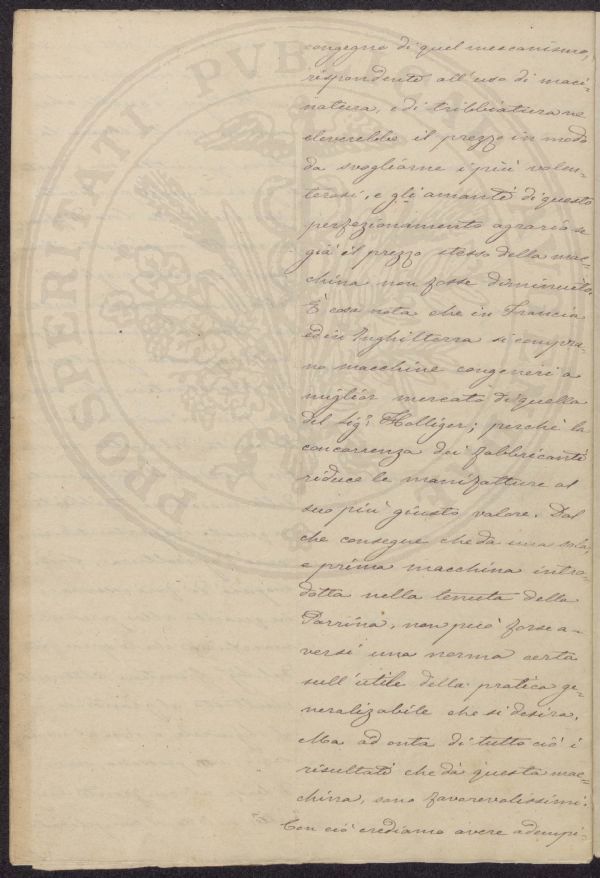 congegno di quel meccanismo,
rispondente all'uso di maci-
natura, e di tribbiatura ne
eleverebbe il prezzo in modo
da svogliarne i più volen-
terosi, e gli amanti di questo
perfezionamento agrario se
già il prezzo stesso della mac-
china non fosse diminuito.
È cosa nota che in Francia
ed in Inghilterra si compra-
no macchine congeneri a
miglior mercato di quella
del Sigr. Holliger; perchè la
concorrenza dei fabbricanti
riduce le manifatture al
suo più giusto valore. Dal
che consegue che da una sola,
e prima macchina intro-
dotta nella tenuta della
Parrina, non può forse a-
versi una norma certa
sull'utile della pratica ge-
neralizabile che si desira.
Ma ad onta di tutto ciò i
risultati che dà questa mac-
china, sono favorevolissimi.
Con ciò crediamo avere adempi-
PROSPERITATI PVBL